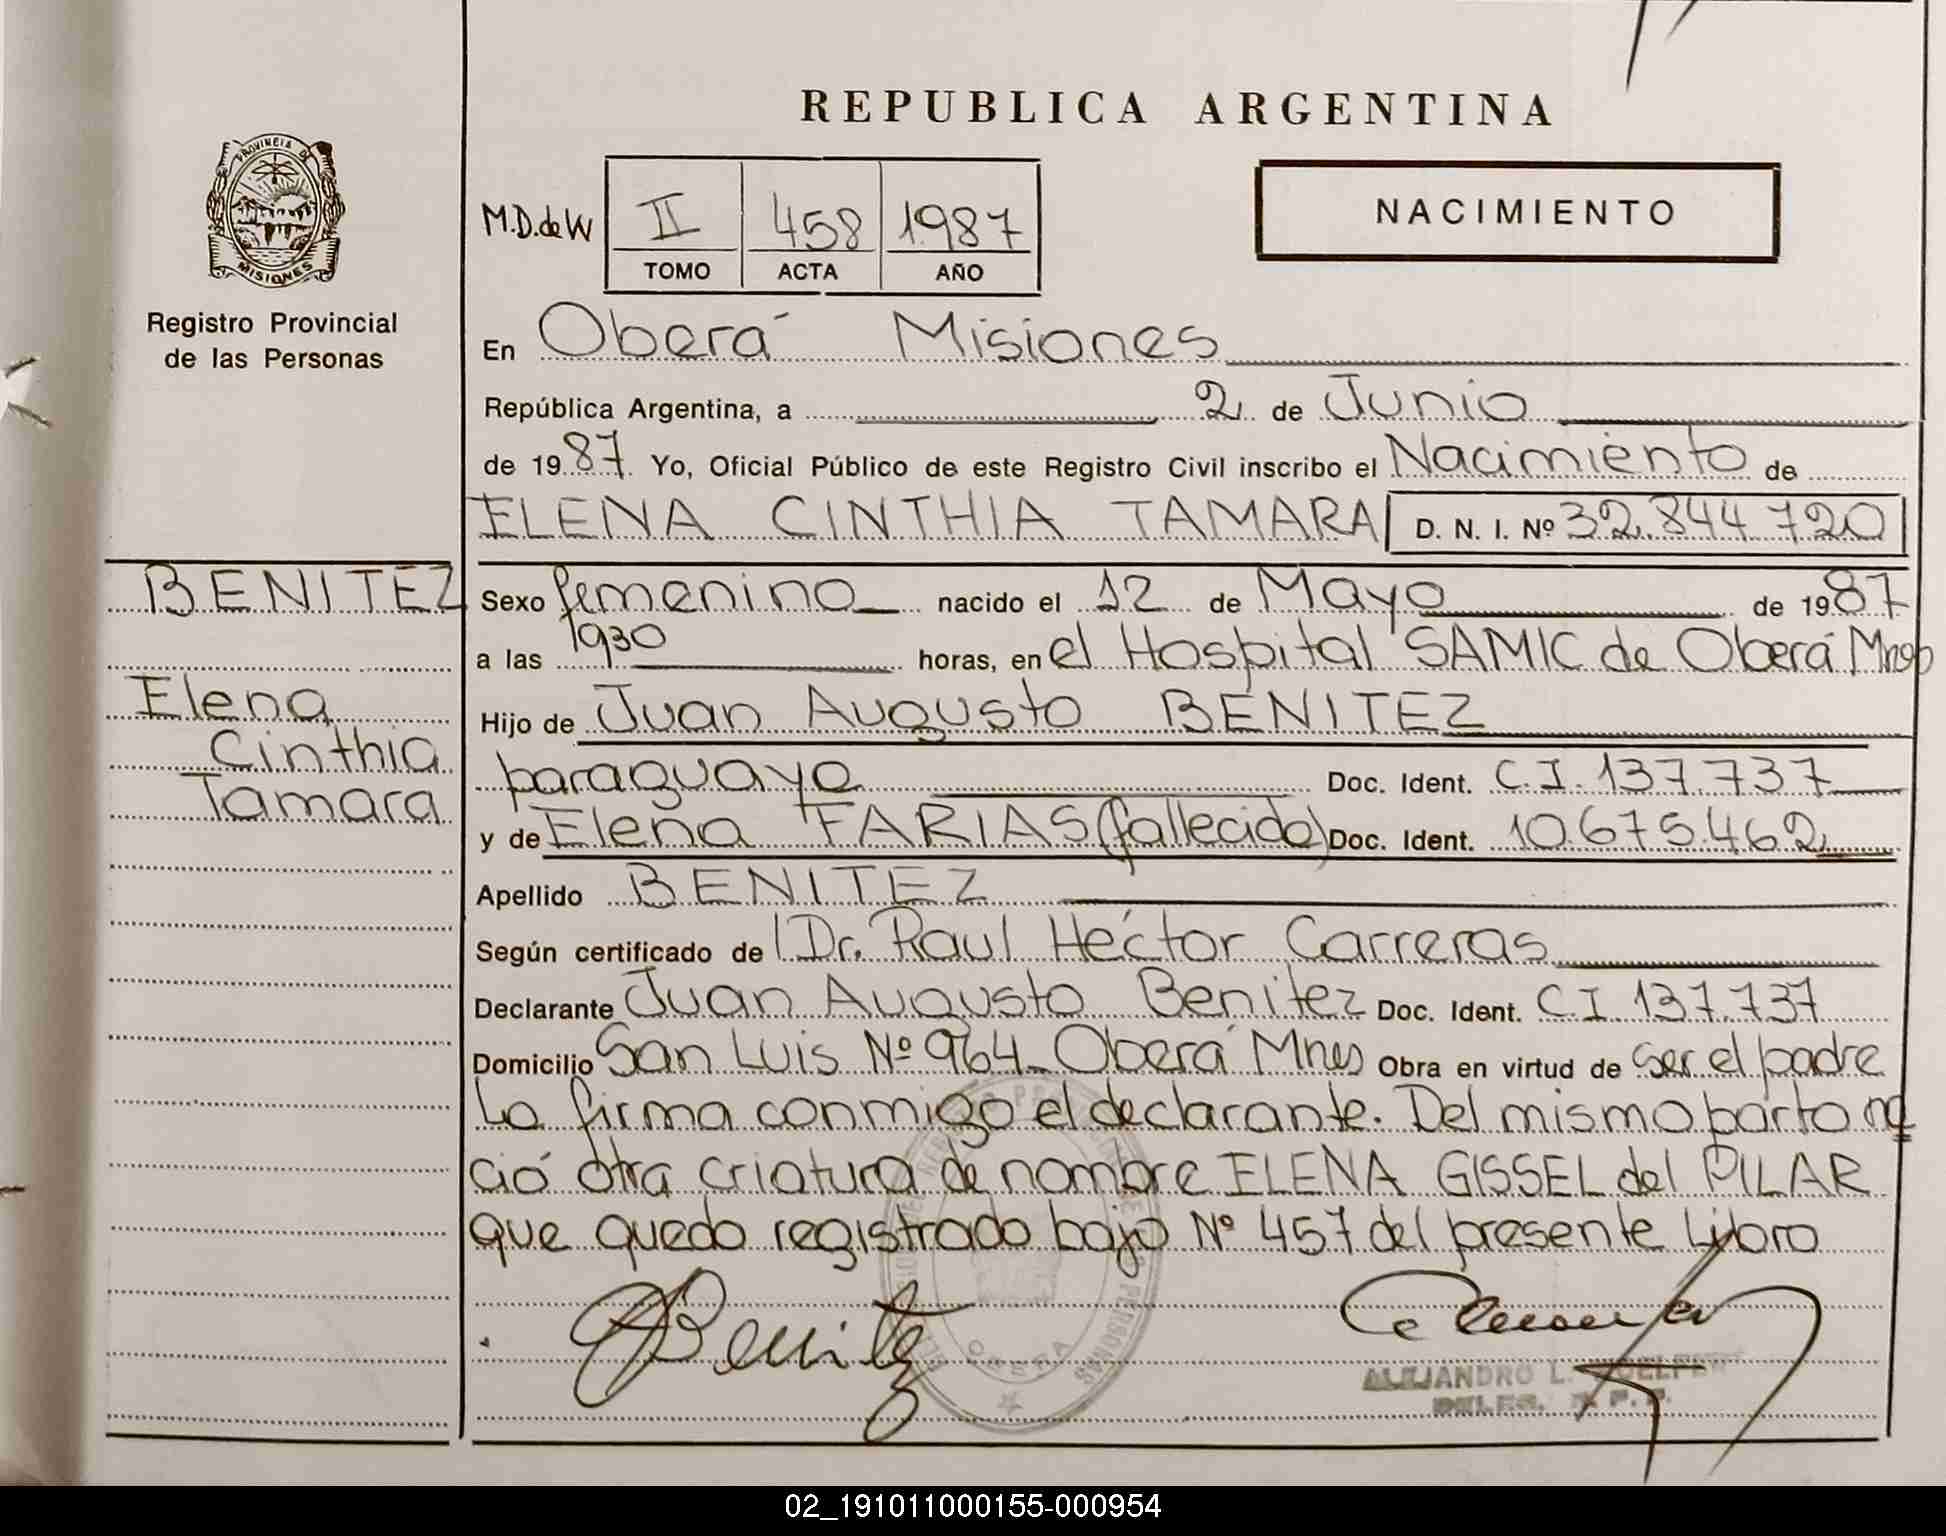 REPUBLICA ARGENTINA
PROVINCIA DE
MISIONES
Registro Provincial
de las Personas
M.D.de W
II 458 1987
TOMO ACTA AÑO
NACIMIENTO
En Oberá Misiones
República Argentina, a 2 de Junio
de 1987. Yo, Oficial Público de este Registro Civil inscribo el Nacimiento de
ELENA CINTHIA TAMARA D. N. I. Nº 32.844.720
BENITEZ
Elena
Cinthia
Tamara
Sexo femenino nacido el 12 de Mayo de 1987
a las 1930 horas, en el Hospital SAMIC de Oberá Mnes
Hijo de Juan Augusto BENITEZ
paraguayo Doc. Ident. C.I. 137.737
y de Elena FARIAS (fallecida) Doc. Ident. 10.675.462
Apellido BENITEZ
Según certificado de Dr. Raul Héctor Carreras
Declarante Juan Augusto Benitez Doc. Ident. C.I 137.737
Domicilio San Luis Nº 964 Oberá Mnes Obra en virtud de ser el padre
La firma conmigo el declarante. Del mismo parto na
ció otra criatura de nombre ELENA GISSEL del PILAR
que quedo registrado bajo Nº 457 del presente Libro
Benitez
OBERA
ALEJANDRO L.
DELEG. R. P. P.
02_191011000155-000954